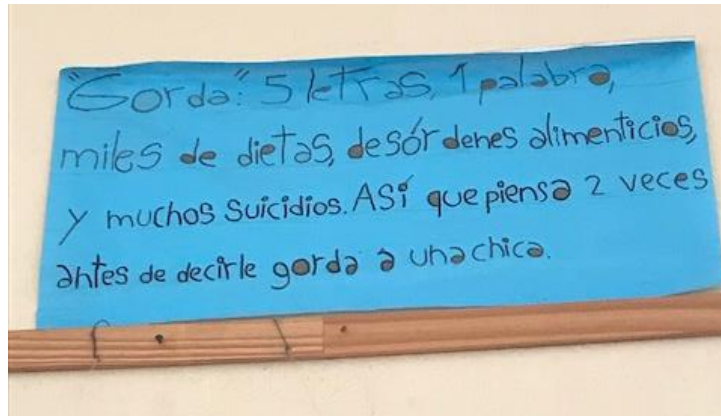 "Gorda": 5 letras, 1 palabra,
miles de dietas, desórdenes alimenticios,
y muchos suicidios. Así que piensa 2 veces
antes de decirle gorda a una chica.